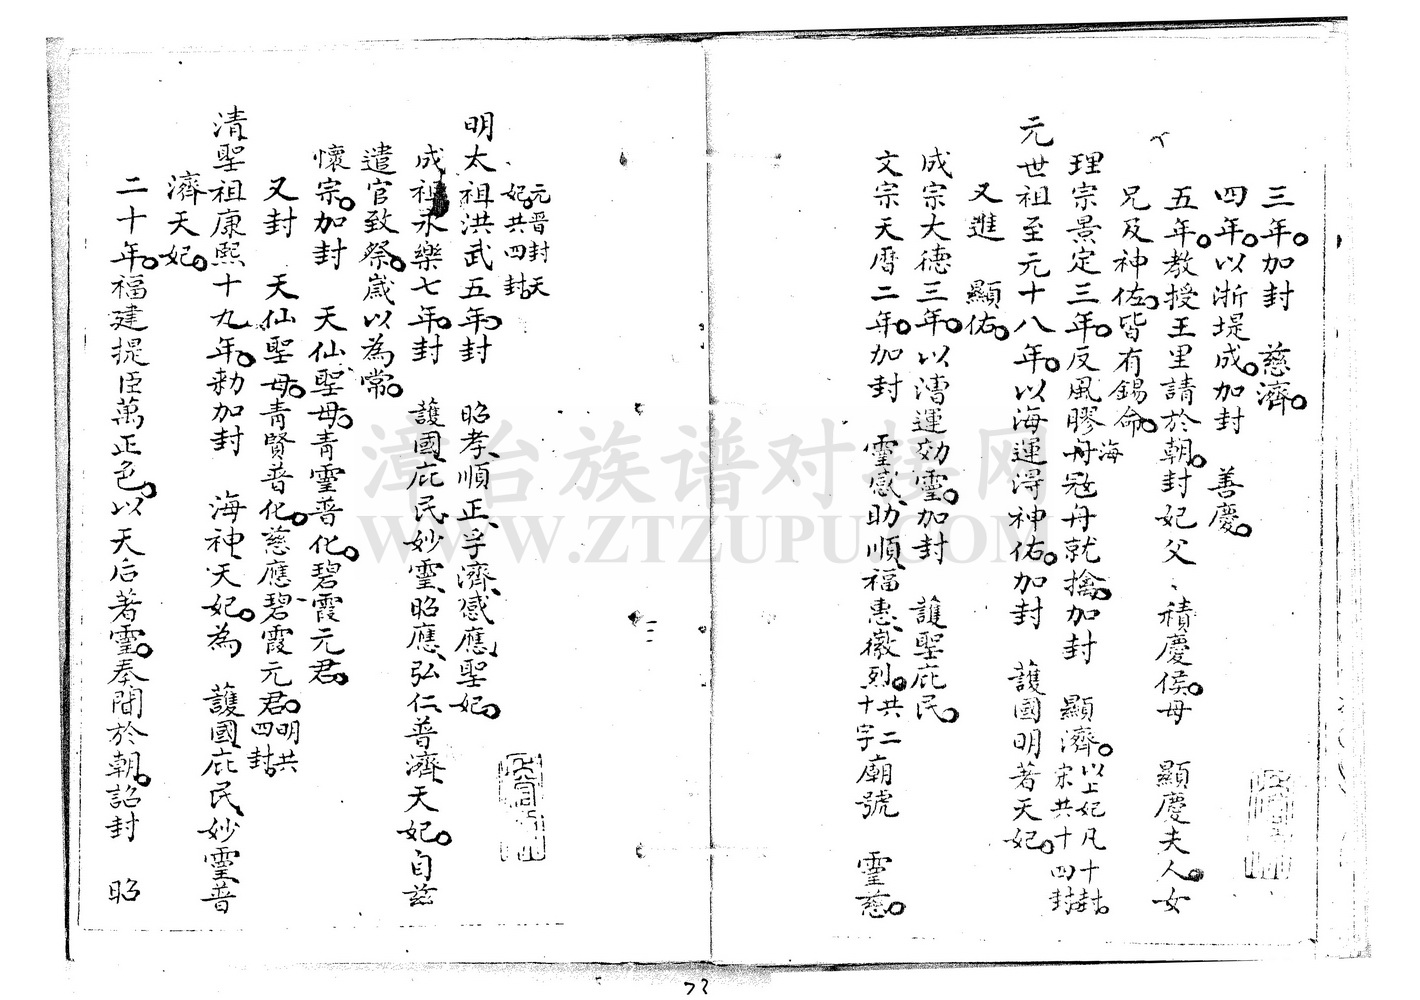 三年。加封　慈濟。
四年。以浙堤成。加封　善慶。
五年。教授王里請於朝。封妃父、積慶侯。母　顯慶夫人。女
兄及神佐。皆有錫命。
理宗景定三年。反風膠海舟寇舟就擒。加封　顯濟。以上妃凡十封。宋共十四封
元世祖至元十八年。以海運得神佑。加封　護國明著天妃。
又進　顯佑。
成宗大德三年。以漕運効靈。加封　護聖庇民。
文宗天曆二年。加封　靈感助順福惠徽烈。共二十字廟號　靈慈。
元晉封天妃。共四封。
明太祖洪武五年。封　昭孝順正孚濟感應聖妃。
成祖永樂七年。封　護國庇民妙靈昭應弘仁普濟天妃。自茲
遣官致祭。歲以為常。
懷宗。加封　天仙聖母。青靈普化。碧霞元君。
又封　天仙聖母。青賢普化。慈應碧霞元君。明共四封。
清聖祖康熙十九年。勅加封　海神天妃。為　護國庇民妙靈普
濟天妃。
二十年。福建提臣萬正色。以天后著靈。奏聞於朝。詔封　昭
漳台族谱对接网
WWW.ZTZUPU.COM